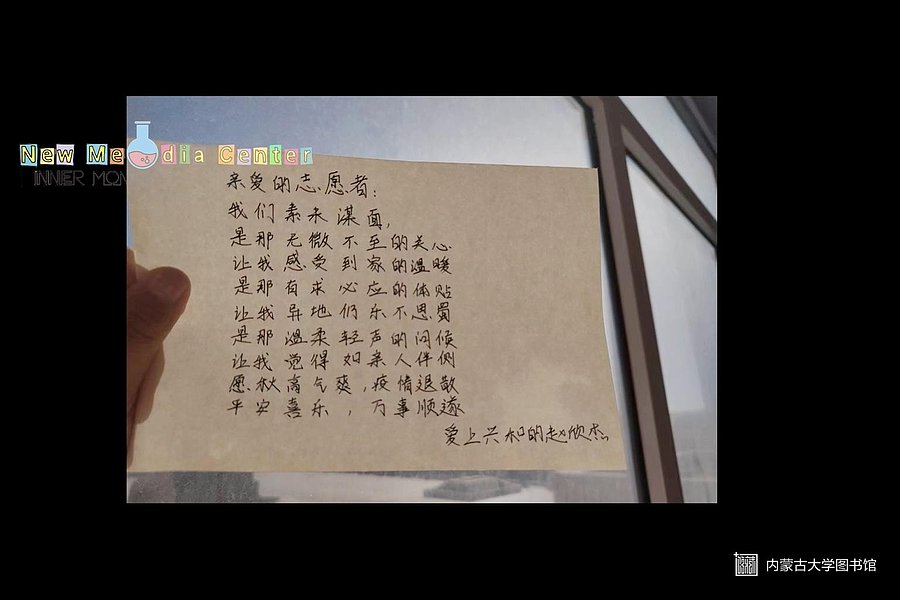 New Media Center
INNER MON
亲爱的志愿者:
我们素未谋面,
是那无微不至的关心
让我感受到家的温暖
是那有求必应的体贴
让我异地仍乐不思蜀
是那温柔轻声的问候
让我觉得如亲人伴侧
愿秋高气爽,疫情退散
平安喜乐,万事顺遂
爱上兴和的赵欣杰
内蒙古大学图书馆